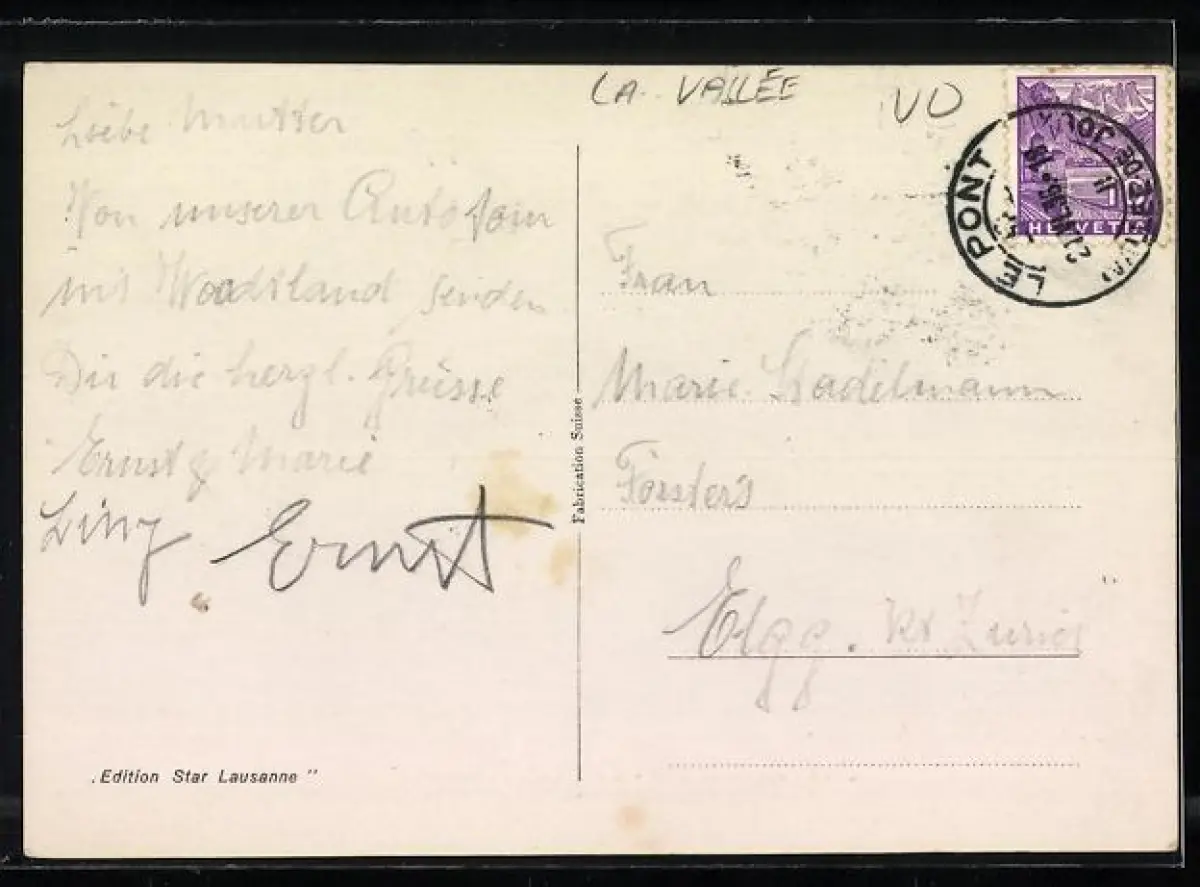 LA VALLÉE VD
Liebe Mutter
Von unserer Autofahrt
mit Woodsland senden
Dir die herzl. Grüsse
Ernst & Marie
Ernst
Frau
Marie Stadelmann
Försters
Elgg. Kt Zürich
Fabrication Suisse
„Edition Star Lausanne"
HELVETIA
LE PONT
DE JOUX